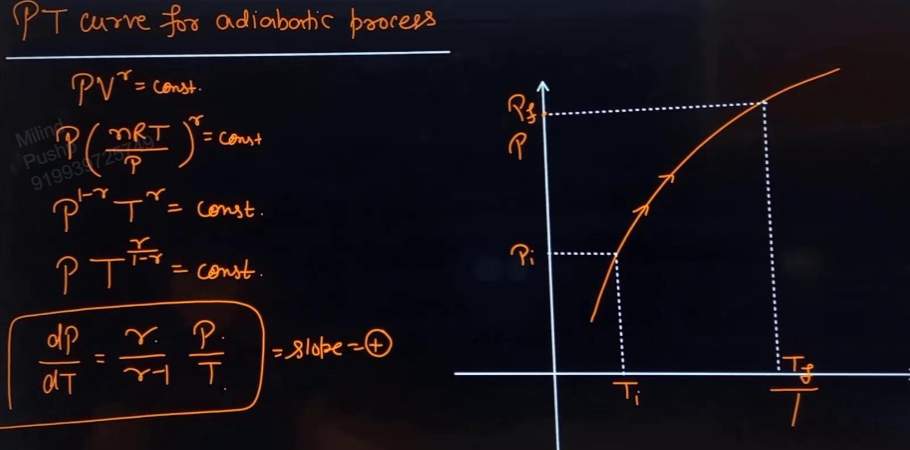 PT curve for adiabatic process
PV^r = const.
P(nRT/P)^r = const
P^1-r T^r = const.
P T^r/1-r = const.
dP/dT = r/r-1 P/T = slope = ⊕
Milind
919939725749
P_f
P
P_i
T_i
T_f